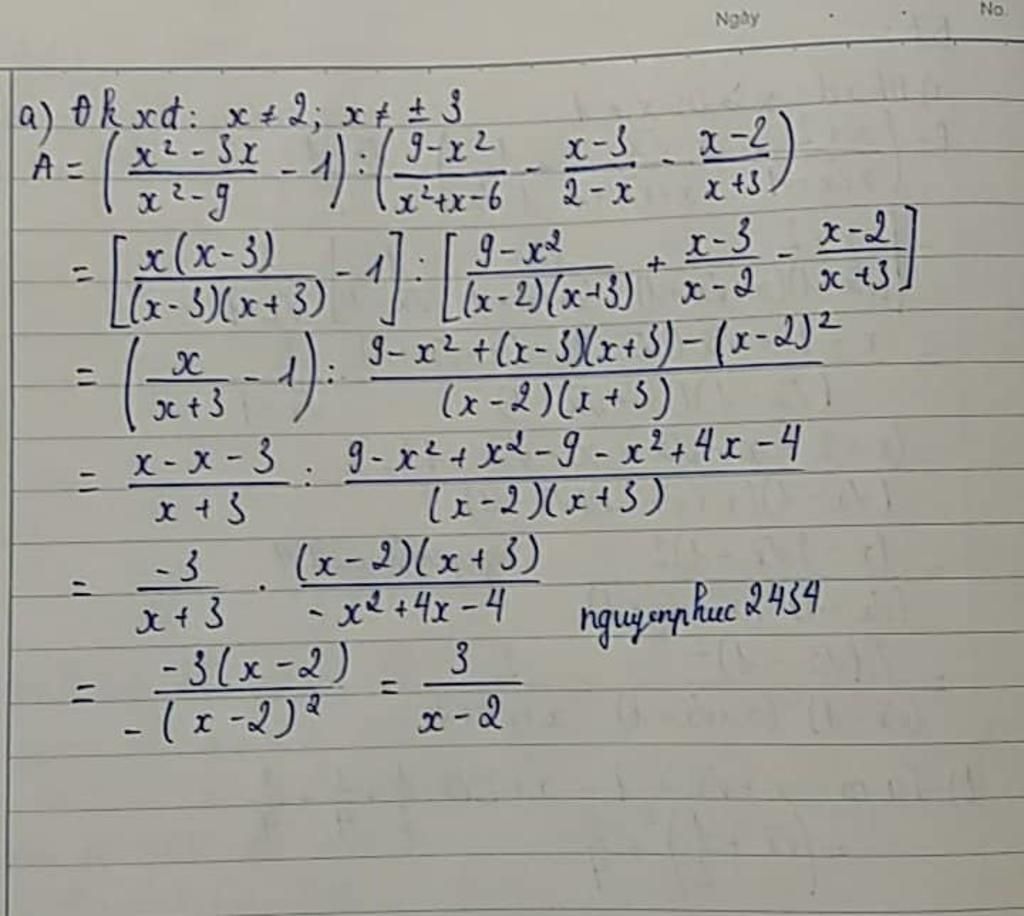 Ngày No.
a) Đkxđ: x ≠ 2; x ≠ ± 3
A = ( (x² - 3x)/(x² - 9) - 1 ) : ( (9 - x²)/(x² + x - 6) - (x - 3)/(2 - x) - (x - 2)/(x + 3) )
= [ x(x - 3)/((x - 3)(x + 3)) - 1 ] : [ (9 - x²)/((x - 2)(x + 3)) + (x - 3)/(x - 2) - (x - 2)/(x + 3) ]
= ( x/(x + 3) - 1 ) : (9 - x² + (x - 3)(x + 3) - (x - 2)²)/((x - 2)(x + 3))
= (x - x - 3)/(x + 3) : (9 - x² + x² - 9 - x² + 4x - 4)/((x - 2)(x + 3))
= -3/(x + 3) . ((x - 2)(x + 3))/(- x² + 4x - 4) nguyenphuc2434
= -3(x - 2)/(-(x - 2)²) = 3/(x - 2)